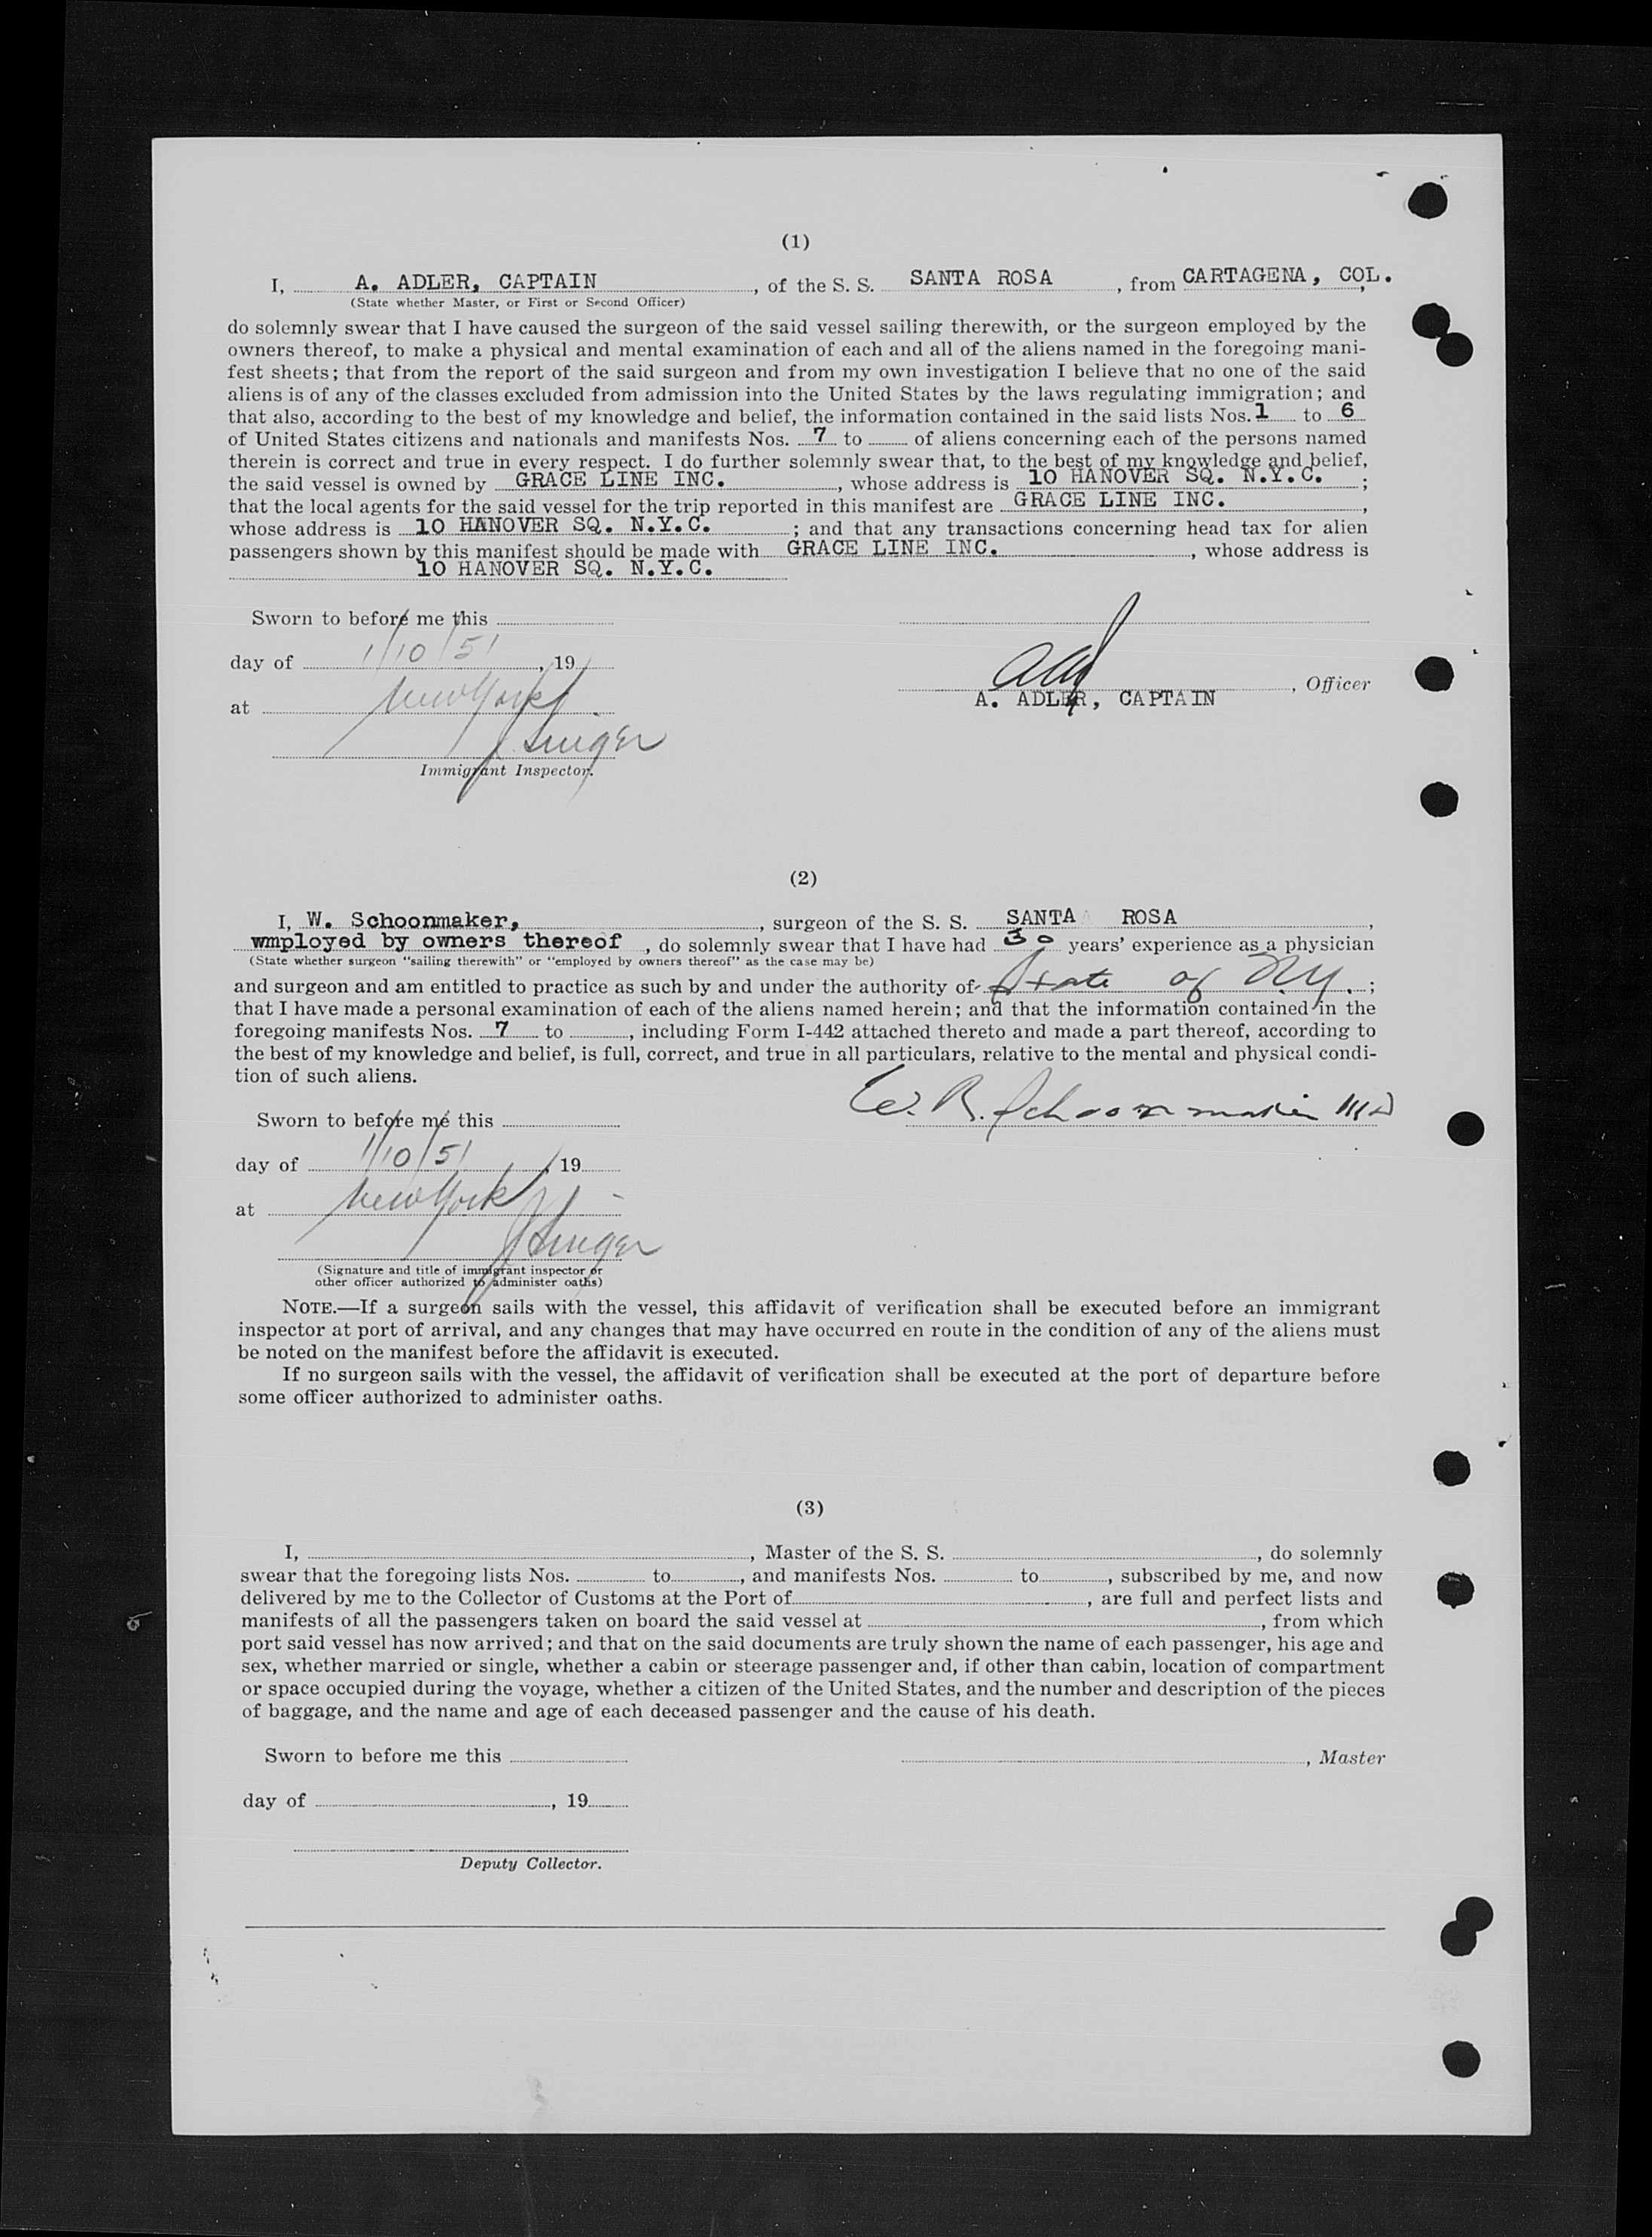 (1)
I, A. ADLER, CAPTAIN, of the S. S. SANTA ROSA, from CARTAGENA, COL.,
(State whether Master, or First or Second Officer)
do solemnly swear that I have caused the surgeon of the said vessel sailing therewith, or the surgeon employed by the
owners thereof, to make a physical and mental examination of each and all of the aliens named in the foregoing mani-
fest sheets; that from the report of the said surgeon and from my own investigation I believe that no one of the said
aliens is of any of the classes excluded from admission into the United States by the laws regulating immigration; and
that also, according to the best of my knowledge and belief, the information contained in the said lists Nos. 1 to 6
of United States citizens and nationals and manifests Nos. 7 to of aliens concerning each of the persons named
therein is correct and true in every respect. I do further solemnly swear that, to the best of my knowledge and belief,
the said vessel is owned by GRACE LINE INC., whose address is 10 HANOVER SQ. N.Y.C.;
that the local agents for the said vessel for the trip reported in this manifest are GRACE LINE INC.,
whose address is 10 HANOVER SQ. N.Y.C.; and that any transactions concerning head tax for alien
passengers shown by this manifest should be made with GRACE LINE INC., whose address is
10 HANOVER SQ. N.Y.C.
Sworn to before me this
day of 1/10/51, 19
, Officer
A. ADLER, CAPTAIN
at New York
J Singer
Immigrant Inspector.
(2)
I, W. Schoonmaker, , surgeon of the S. S. SANTA ROSA,
wmployed by owners thereof, do solemnly swear that I have had 30 years' experience as a physician
(State whether surgeon "sailing therewith" or "employed by owners thereof" as the case may be)
and surgeon and am entitled to practice as such by and under the authority of State of NY.;
that I have made a personal examination of each of the aliens named herein; and that the information contained in the
foregoing manifests Nos. 7 to , including Form I-442 attached thereto and made a part thereof, according to
the best of my knowledge and belief, is full, correct, and true in all particulars, relative to the mental and physical condi-
tion of such aliens.
W. R. Schoonmaker MD
Sworn to before me this
day of 1/10/51, 19
at New York
J Singer
(Signature and title of immigrant inspector or
other officer authorized to administer oaths)
NOTE.—If a surgeon sails with the vessel, this affidavit of verification shall be executed before an immigrant
inspector at port of arrival, and any changes that may have occurred en route in the condition of any of the aliens must
be noted on the manifest before the affidavit is executed.
If no surgeon sails with the vessel, the affidavit of verification shall be executed at the port of departure before
some officer authorized to administer oaths.
(3)
I, , Master of the S. S. , do solemnly
swear that the foregoing lists Nos. to , and manifests Nos. to , subscribed by me, and now
delivered by me to the Collector of Customs at the Port of , are full and perfect lists and
manifests of all the passengers taken on board the said vessel at , from which
port said vessel has now arrived; and that on the said documents are truly shown the name of each passenger, his age and
sex, whether married or single, whether a cabin or steerage passenger and, if other than cabin, location of compartment
or space occupied during the voyage, whether a citizen of the United States, and the number and description of the pieces
of baggage, and the name and age of each deceased passenger and the cause of his death.
Sworn to before me this
, Master
day of , 19
Deputy Collector.